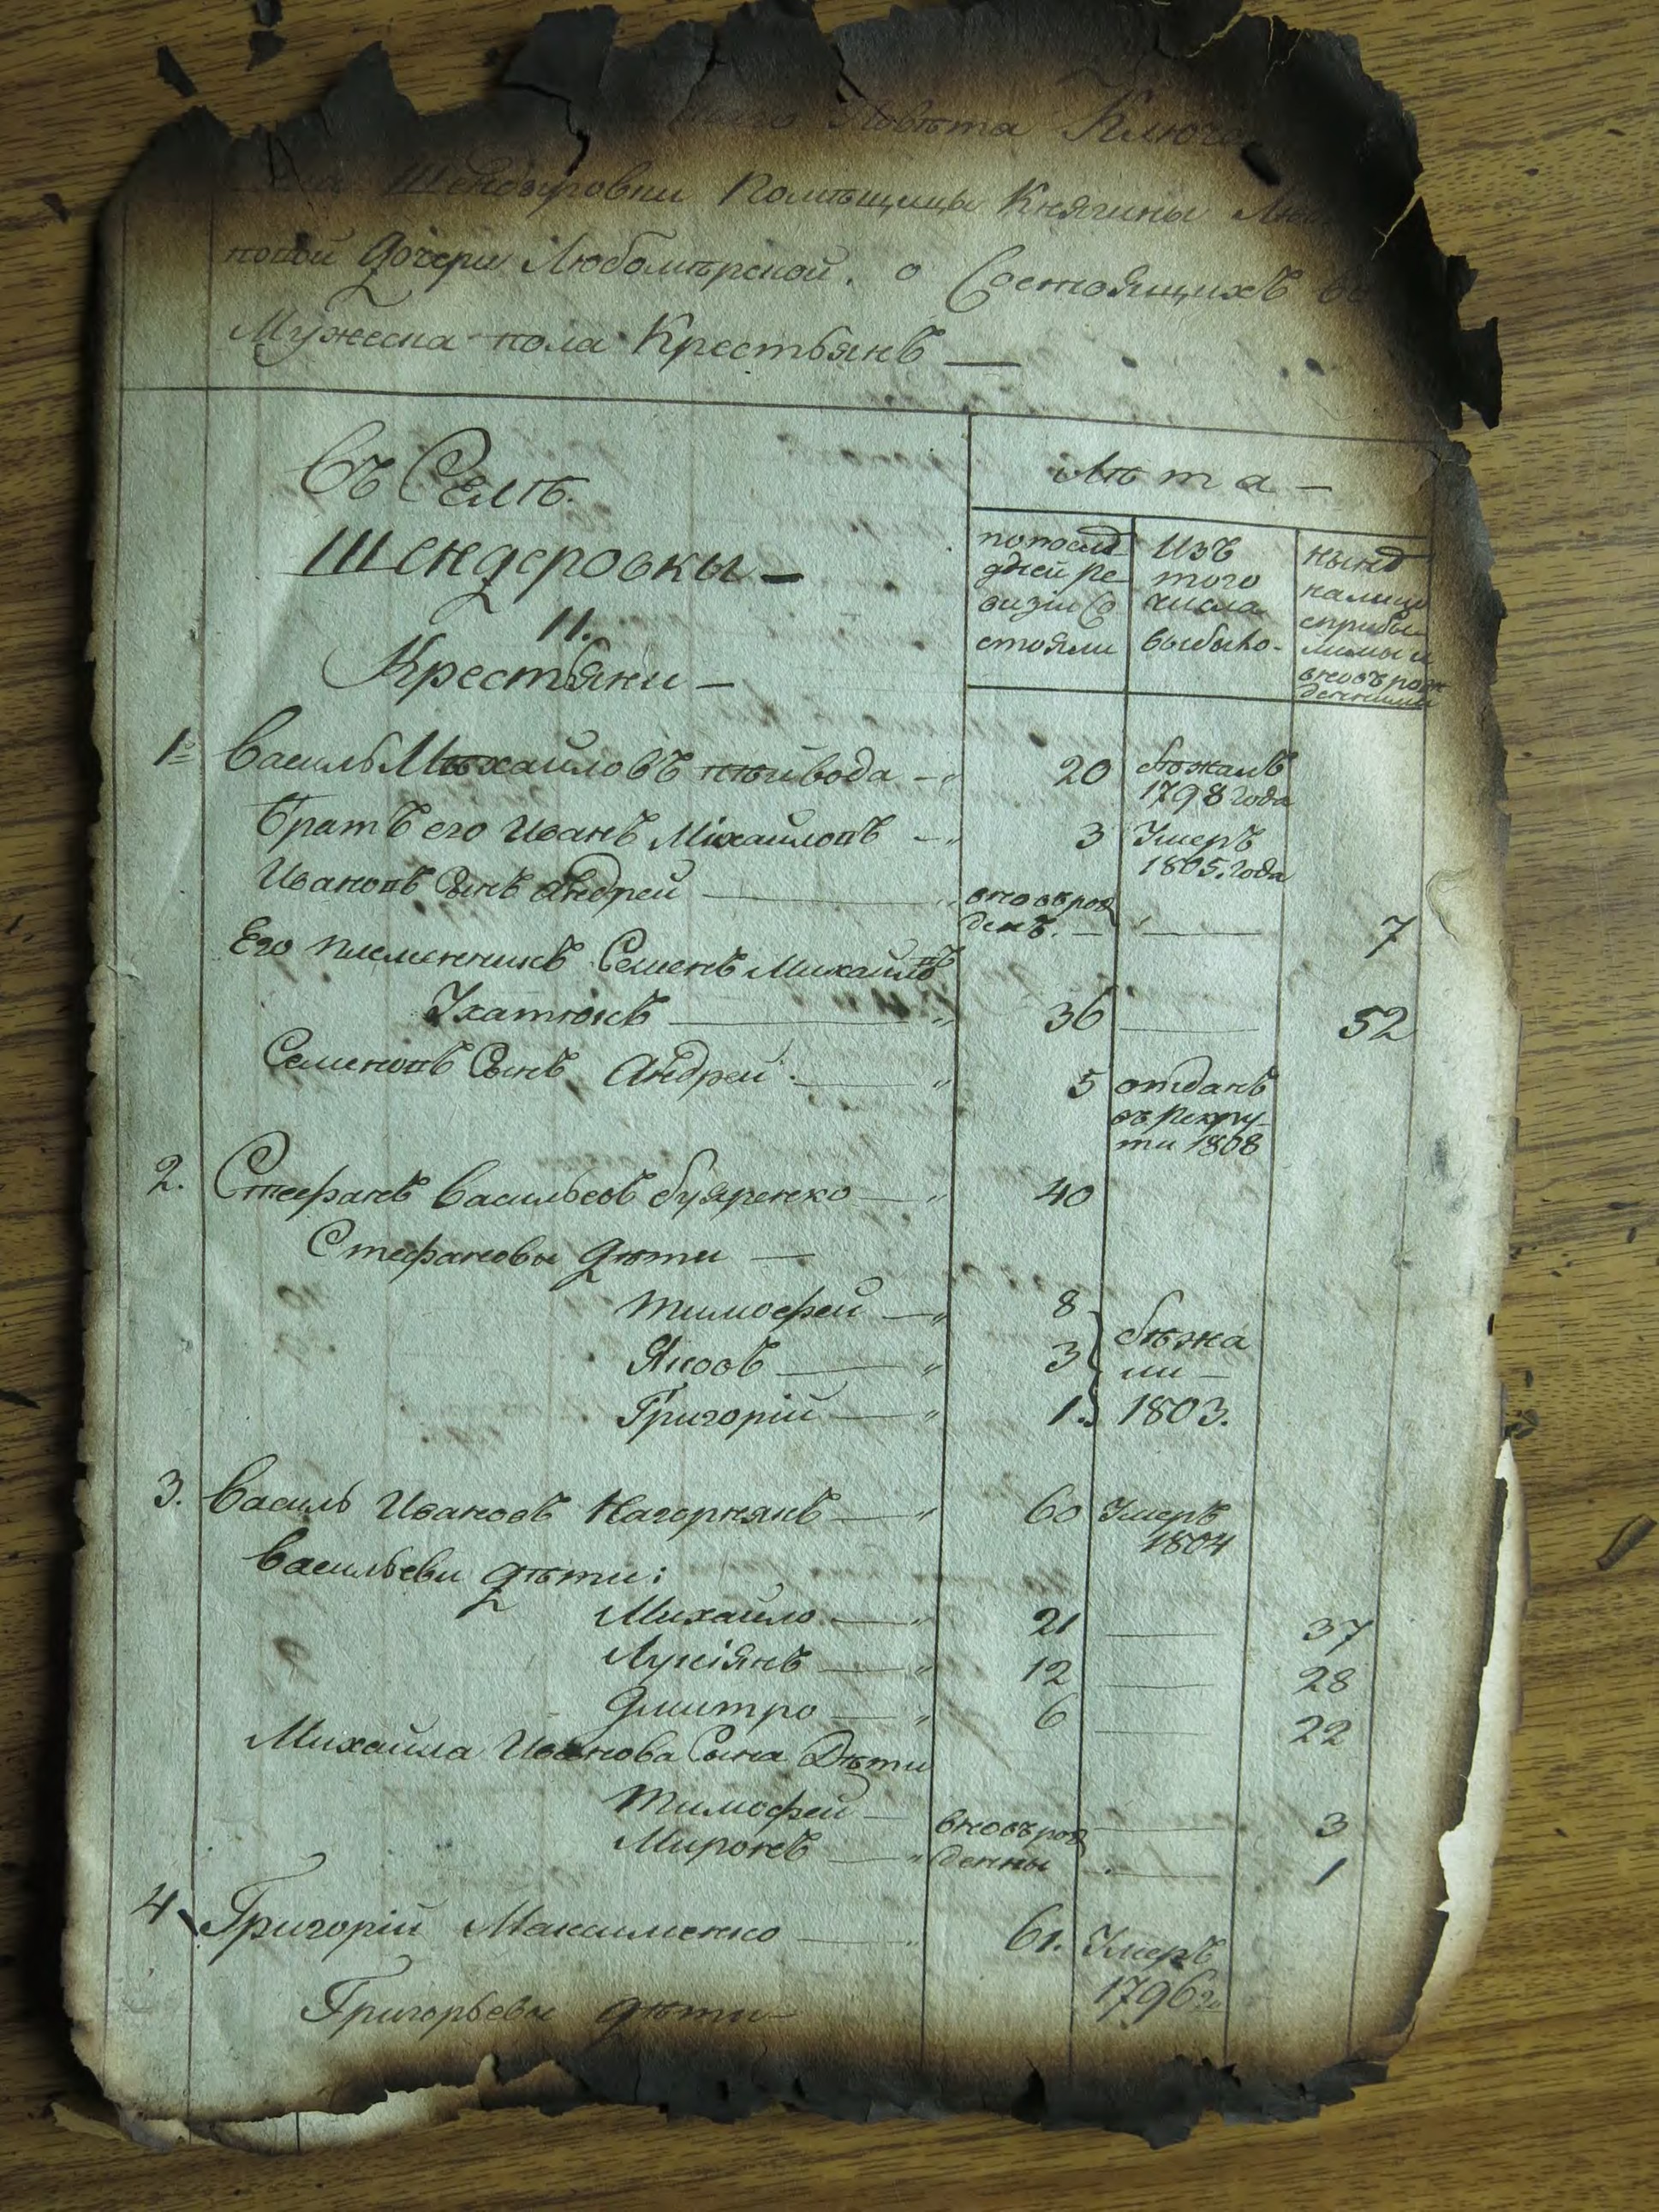 Повѣта Ключа
Шендеровки Помѣщицы Княгины
повой Дочери Любомѣрской, о Состоящихъ въ
Мужеска пола Крестьянъ —
Въ Селѣ.
Шендеровки —
11.
Крестьяни —
Лѣта —
попослѣ
дней Ре
визіи Со
стояли
Изъ
того
числа
выбыло -
нынѣ
налицо
сприбы
лыми и
вновъ рож
денными
1. Василь Михайловъ —„ 20 бѣжалъ
1798 года
Братъ его Иванъ Міхайловъ —„ 3 Умеръ
1805. года
Ивановъ Сынъ Андрей —„ вновърож
денъ. — — 7
Его племенникъ Семенъ Михайловъ
Ухатюкъ —„ 36 — 52
Семеновъ Сынъ Андрей —„ 5 отданъ
въ рекру-
ти 1808
2. Стефанъ Васильевъ Буяренко —„ 40
Стефановы Дѣти —
Тимофей —„ 8
Яковъ —„ 3 бѣжа
ли —
Григорій —„ 1. 1803.
3. Василь Ивановъ Нагорнякъ —„ 60 Умеръ
1804
Васильеви Дѣти:
Михайло —„ 21 — 37
Лукіянъ —„ 12 — 28
Дмитро —„ 6 — 22
Михайла Иванова Сына Дѣти
Тимофей — вновърож — 3
Миронъ —„ денны — 1
4. Григорій Максименко —„ 61. Умеръ
1796 го
Григорьевы дѣти —